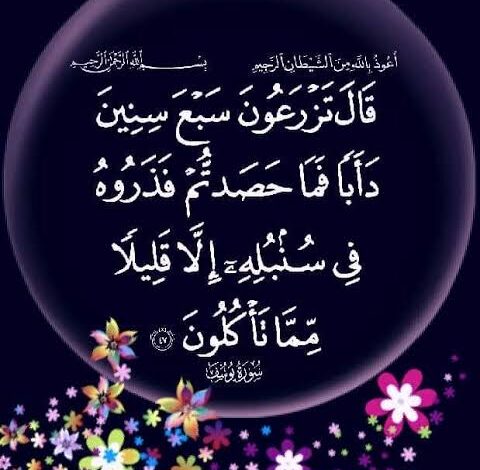 أعوذ بالله من الشيطان الرجيم بسم الله الرحمن الرحيم
قَالَ تَزْرَعُونَ سَبْعَ سِنِينَ
دَأَبًا فَمَا حَصَدتُّمْ فَذَرُوهُ
فِي سُنۢبُلِهِۦٓ إِلَّا قَلِيلًا
مِّمَّا تَأْكُلُونَ ٤٧
سورة يوسف